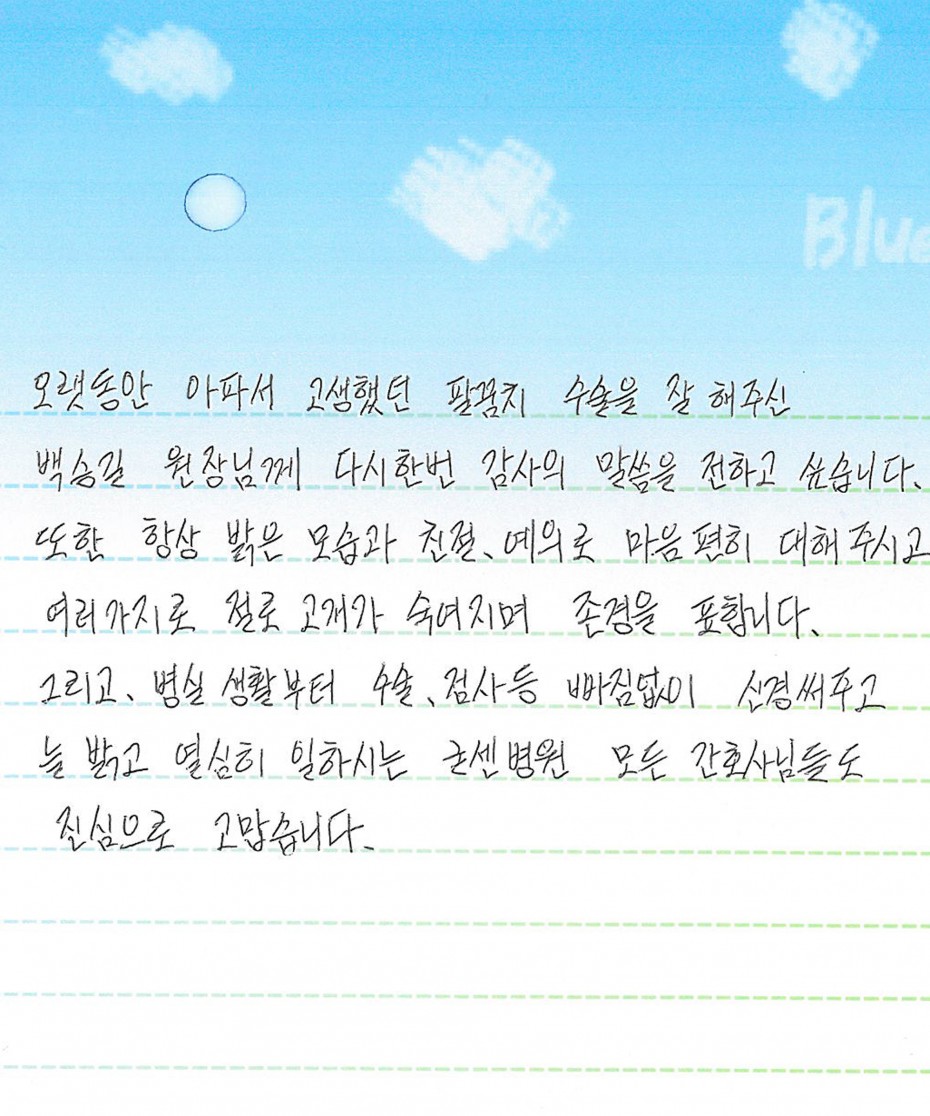 Blue
오랫동안 아파서 고생했던 팔꿈치 수술을 잘 해주신
백승길 원장님께 다시한번 감사의 말씀을 전하고 싶습니다.
또한 항상 밝은 모습과 친절、예의로 마음 편히 대해 주시고
여러가지로 절로 고개가 숙여지며 존경을 표합니다、
그리고、병실 생활부터 수술、검사등 빠짐없이 신경써주고
늘 밝고 열심히 일하시는 굳센병원 모든 간호사님들도
진심으로 고맙습니다、